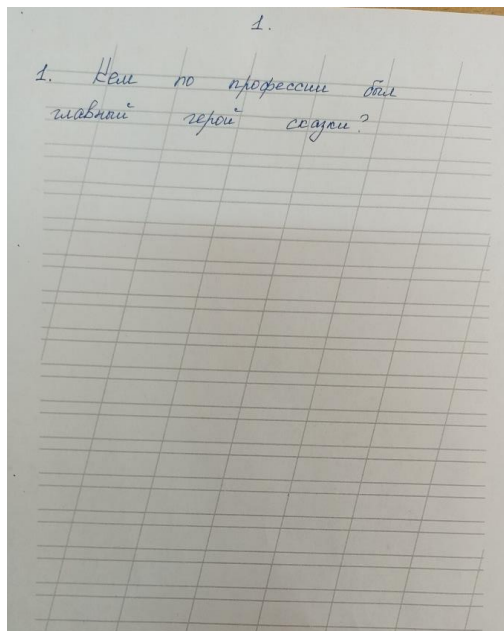 1.
1. Кем по профессии был
главный герой сказки?